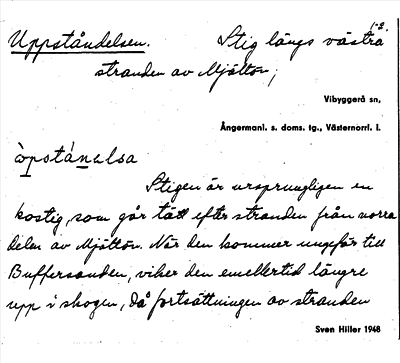 1-2.
Uppståndelsen. Stig längs västra
stranden av Mjältön,
Vibyggerå sn,
Ångermanl. s. doms. tg., Västernorrl. l.
òpstánalsa
Stigen är ursprungligen en
kostig, som går tätt efter stranden från norra
delen av Mjältön. När den kommer ungefär till
Buffersanden, viker den emellertid längre
upp i skogen, då fortsättningen av stranden
Sven Hiller 1948